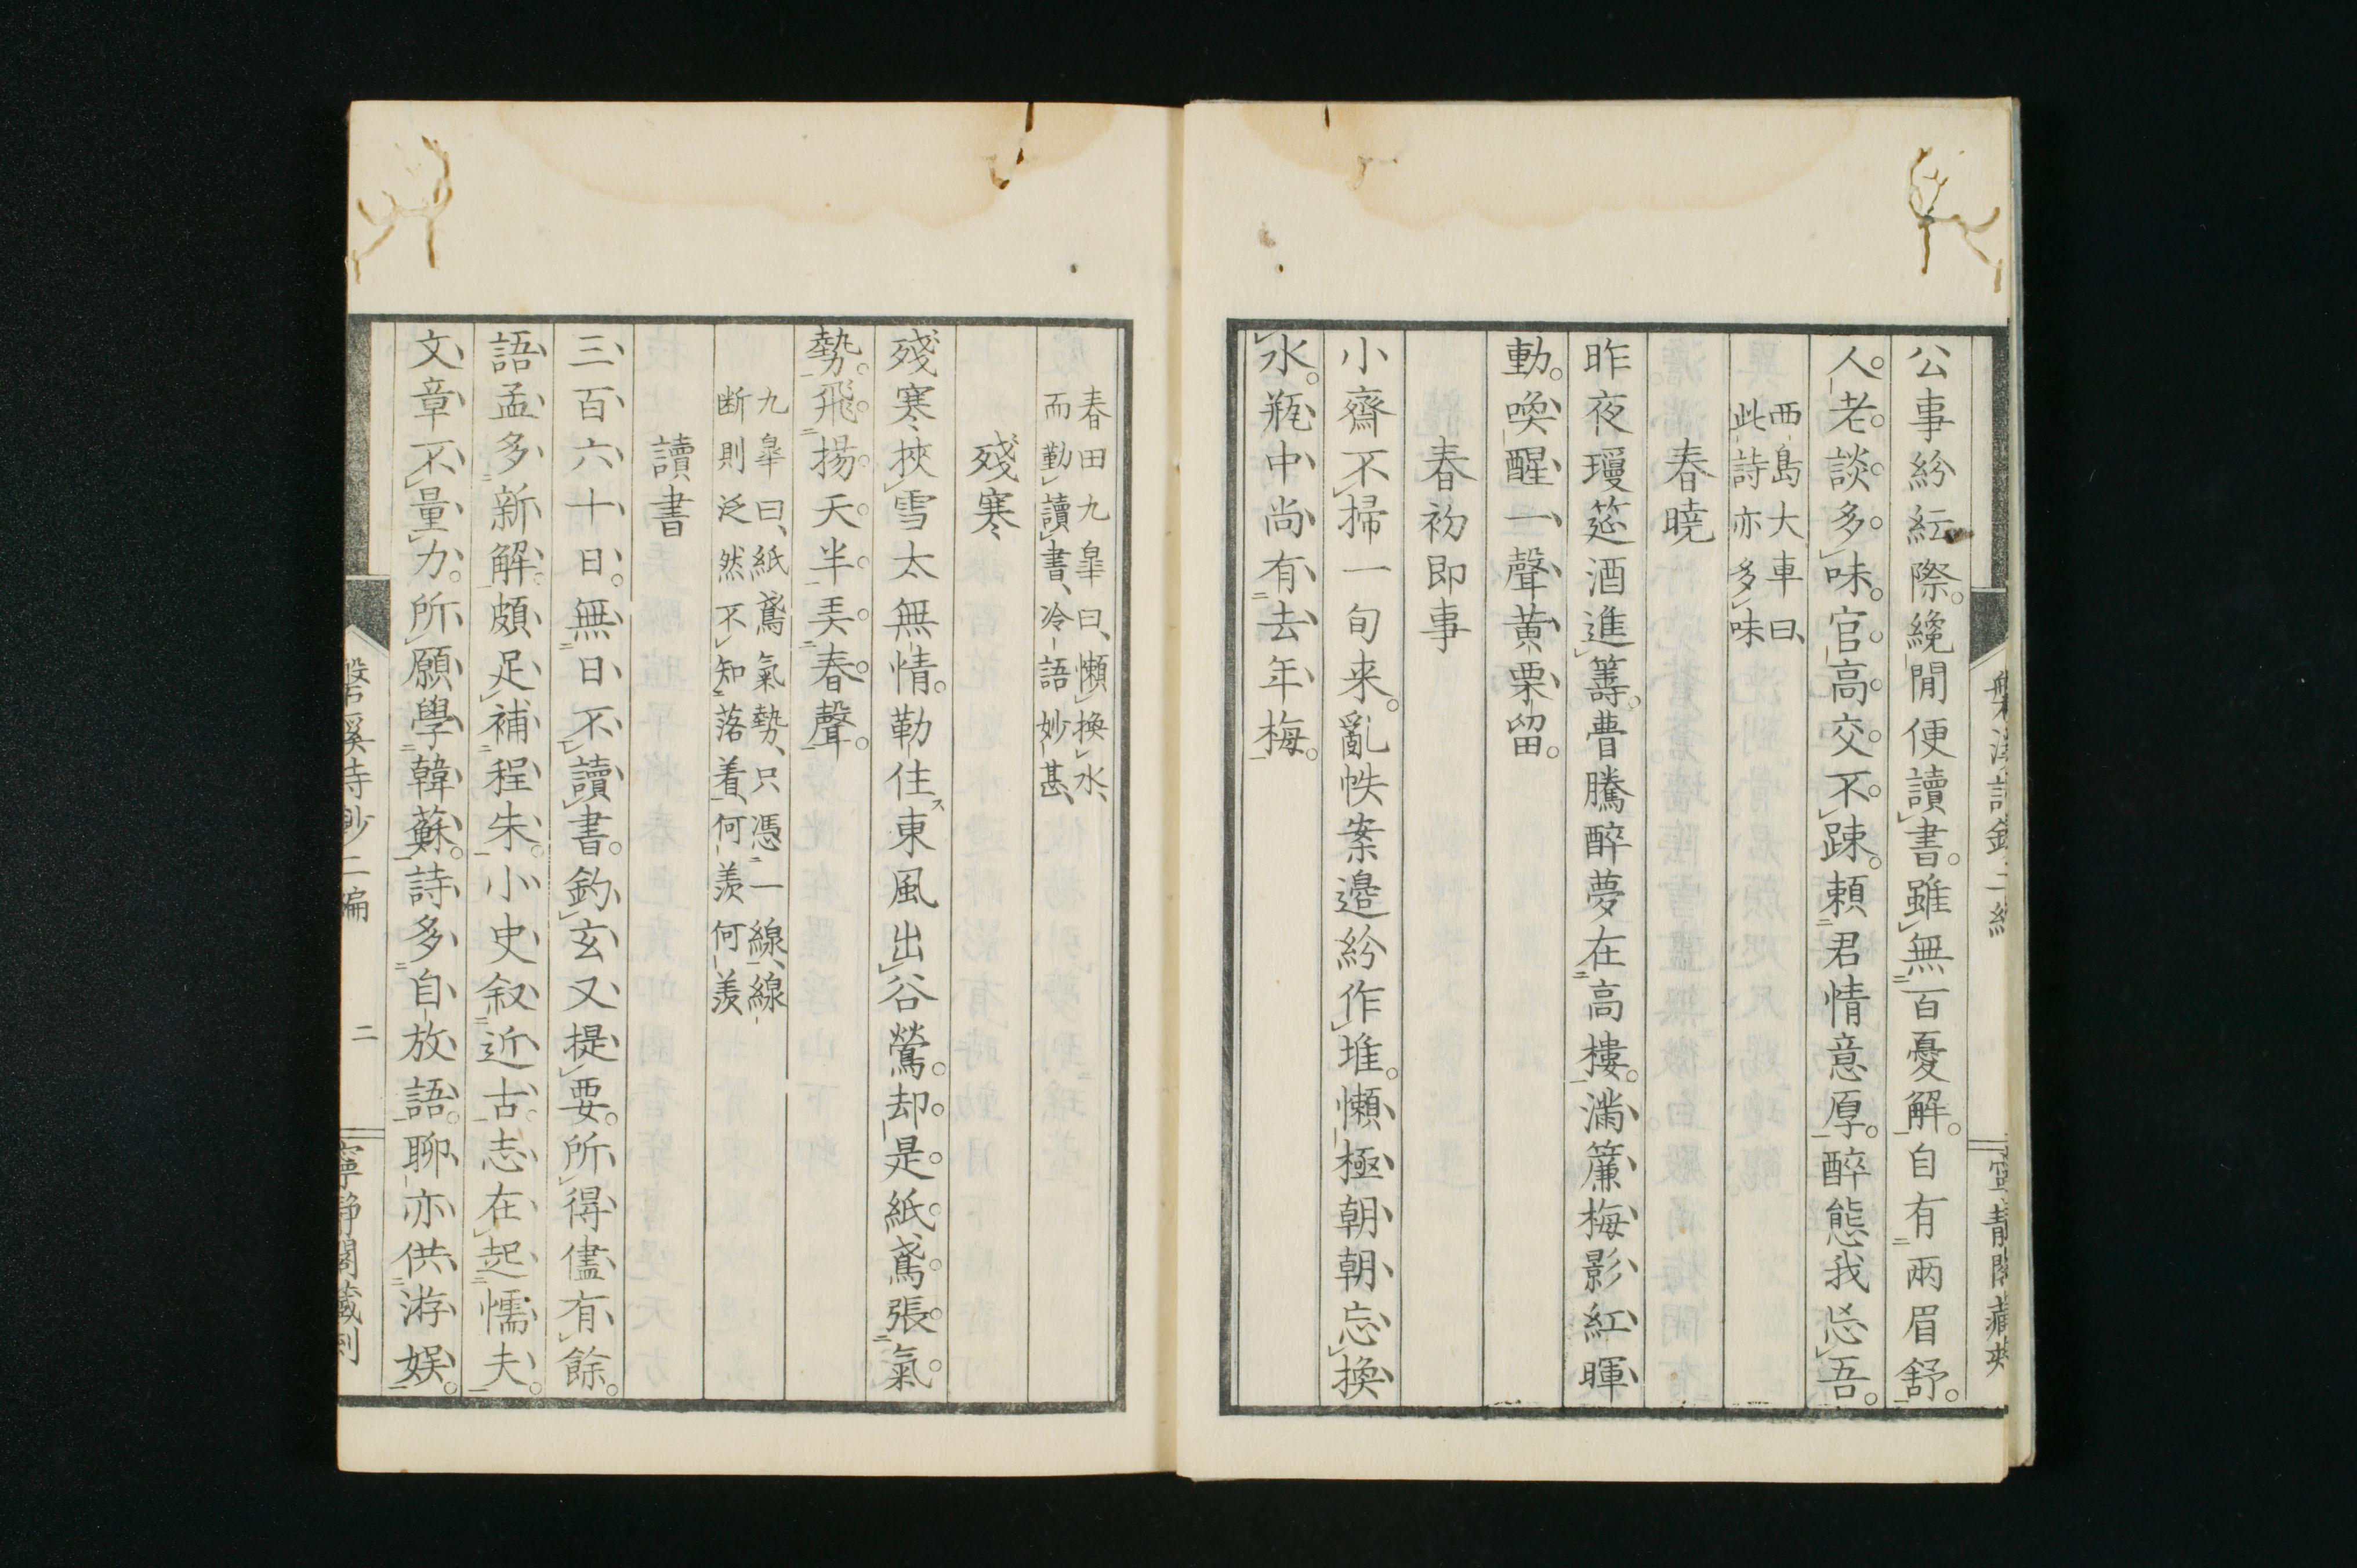 公事紛紜際。纔閒便讀書。雖無百憂解。自有兩眉舒。
人老談多味。官高交不踈。頼君情意厚。醉態我忘吾。
西島大車曰、
此詩亦多味
春曉
昨夜瓊筵酒進籌。瞢騰醉夢在高樓。滿簾梅影紅暉
動。喚醒一聲黄栗留。
春初即事
小齋不掃一旬来。亂帙案邉紛作堆。懶極朝朝忘換
水。瓶中尚有去年梅。
春田九皐曰、懶換水、
而勤讀書、冷語妙甚、
殘寒
殘寒挾雪太無情。勒住東風出谷鶯。却是紙鳶張氣
勢。飛揚天半弄春聲。
九皐曰、紙鳶氣勢、只憑一線、線
断則泛然不知落着、何羨何羨
讀書
三百六十日。無日不讀書。釣玄又提要。所得儘有餘。
語孟多新解。頗足補程朱。小史叙近古。志在起懦夫。
文章不量力。所願學韓蘇。詩多自放語。聊亦供游娯。
磐溪詩鈔二編
二
寧静閣藏刻